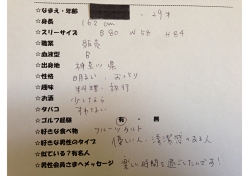 ☆なまえ・年齢 29才
☆身長 162cm
☆スリーサイズ B 80 W 58 H 84
☆職業 販売
☆血液型 B
☆出身地 神奈川県
☆性格 明るい、おっとり
☆趣味 料理・旅行
☆お酒 少しなら
☆タバコ すわない
☆ゴルフ経験 有・無
☆好きな食べ物 フルーツタルト
☆好きな男性のタイプ 優しい人・清潔感のある人
☆似ている?有名人
☆男性会員さまへメッセージ 楽しい時間を過ごしたいです!